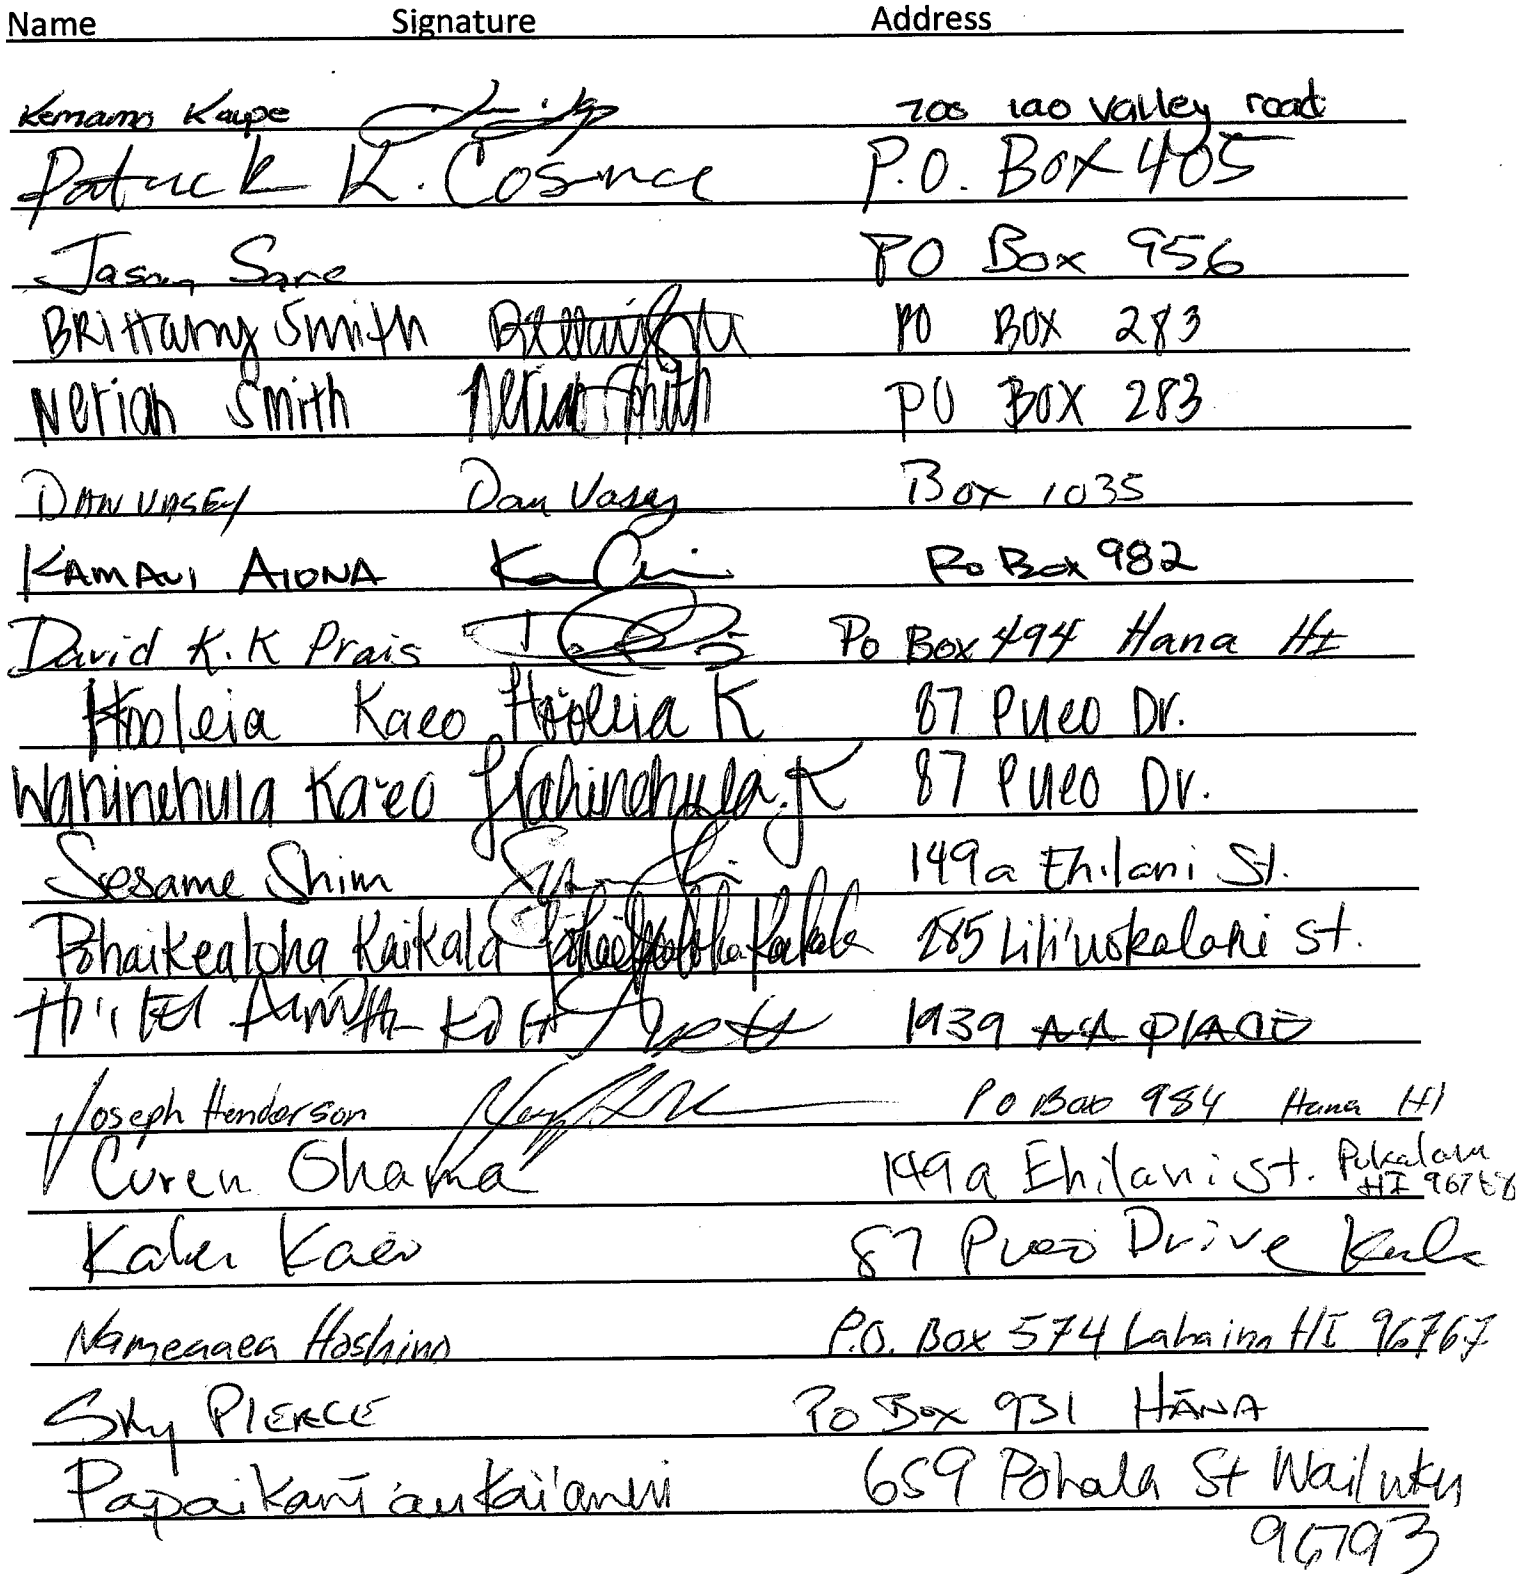 Name Signature Address
Kemamo Kaupe 700 iao valley road
Patrick K. Cosmce P.O. Box 405
Jason Sare PO Box 956
Brittany Smith PO BOX 283
Neriah Smith Neriah Smith PO BOX 283
DAN VASEY Dan Vasey Box 1035
KAMAUI AIONA Po Box 982
David K.K Prais Po Box 494 Hana HI
Hooleia Kaeo Ho'oleia K 87 Pueo Dr.
Wahinehula Ka'eo Wahinehula.K 87 Pueo Dr.
Sesame Shim 149a Ehilani St.
Pohaikealoha Kaikala Pohaikealoha Kaikala 285 Lili'uokalani St.
1939 PLACE
Joseph Henderson Po Box 984 Hana HI
Curen Ohama 149a Ehilani St. Pukalani
HI 96768
Kaleu Kaeo 87 Pueo Drive Kula
Nameaaea Hoshino P.O. Box 574 Lahaina HI 96767
Sky PIERCE Po Box 931 HĀNA
659 Pohala St Wailuku
96793